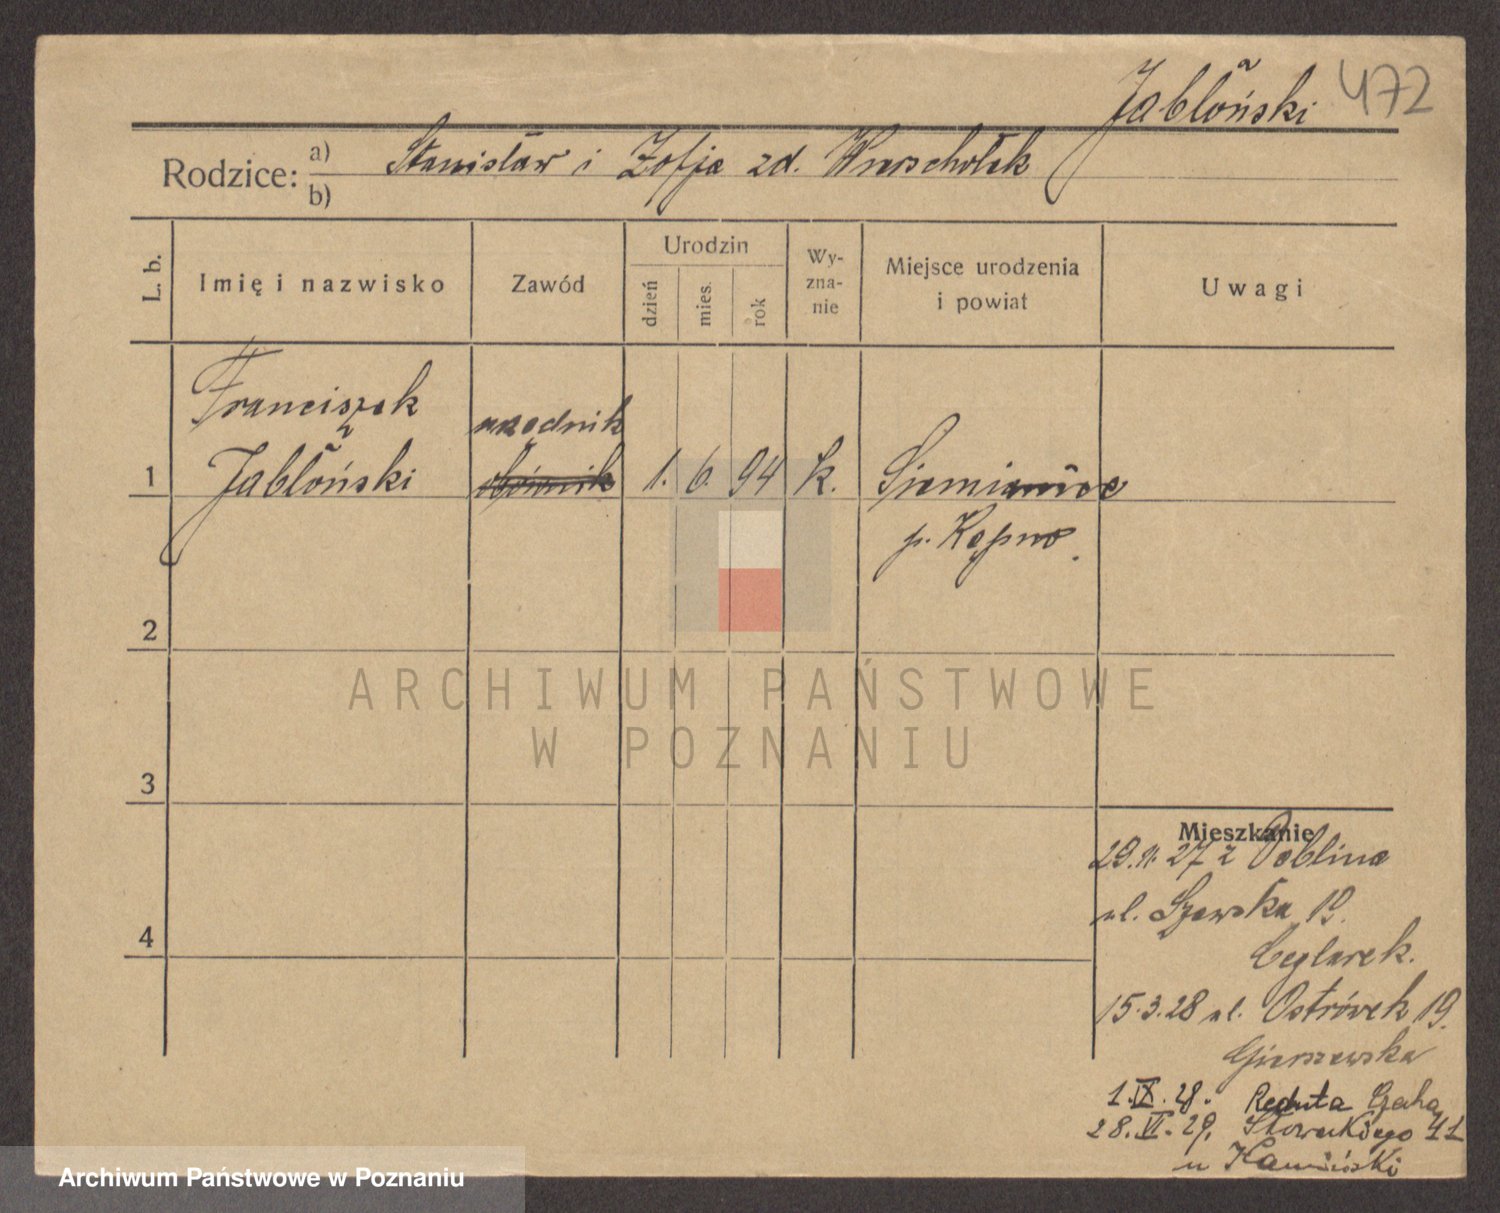 Jabłoński 472
Rodzice: a) Stanisław i Zofja zd.
b)
L. b. Imię i nazwisko Zawód Urodzin dzień mies. rok Wy-zna-nie Miejsce urodzenia i powiat Uwagi
Franciszek urzędnik
1 Jabłoński 1. 6. 94 k. Siemianice
p. Kępno.
2
ARCHIWUM PAŃSTWOWE
W POZNANIU
3
Mieszkanie
29.11.27 z
ul. Szewska 19.
4
Ceglarek.
15.3.28 ul. Ostrówek 19.
Gierszewska
1.IX.28. Reduta
28.VI.29. Słowackiego 41
u Kamiński
Archiwum Państwowe w Poznaniu